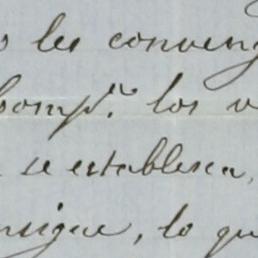 les conveng
Comp.ª los v
se establesca,
nsigue, lo qu